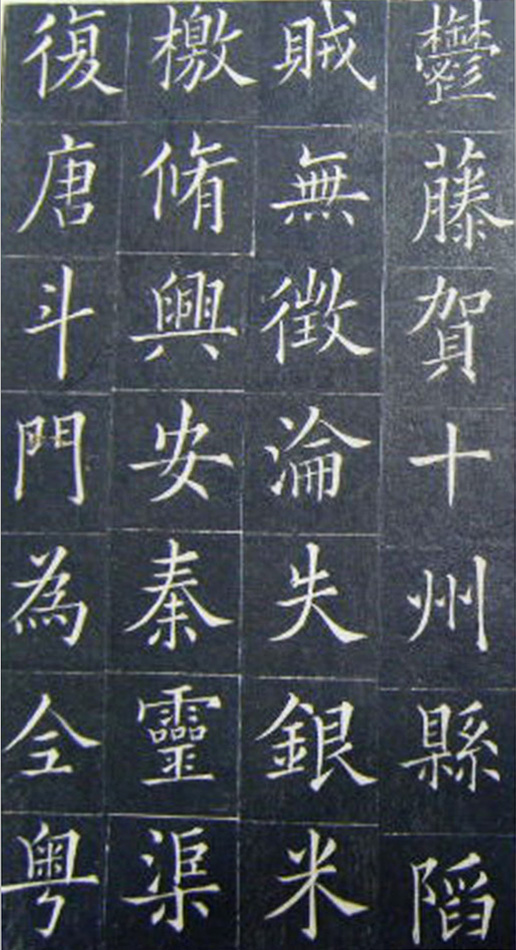 鬱藤賀十州縣陷
賊無徵淪失銀米
檄脩興安秦靈渠
復唐斗門為仝粵